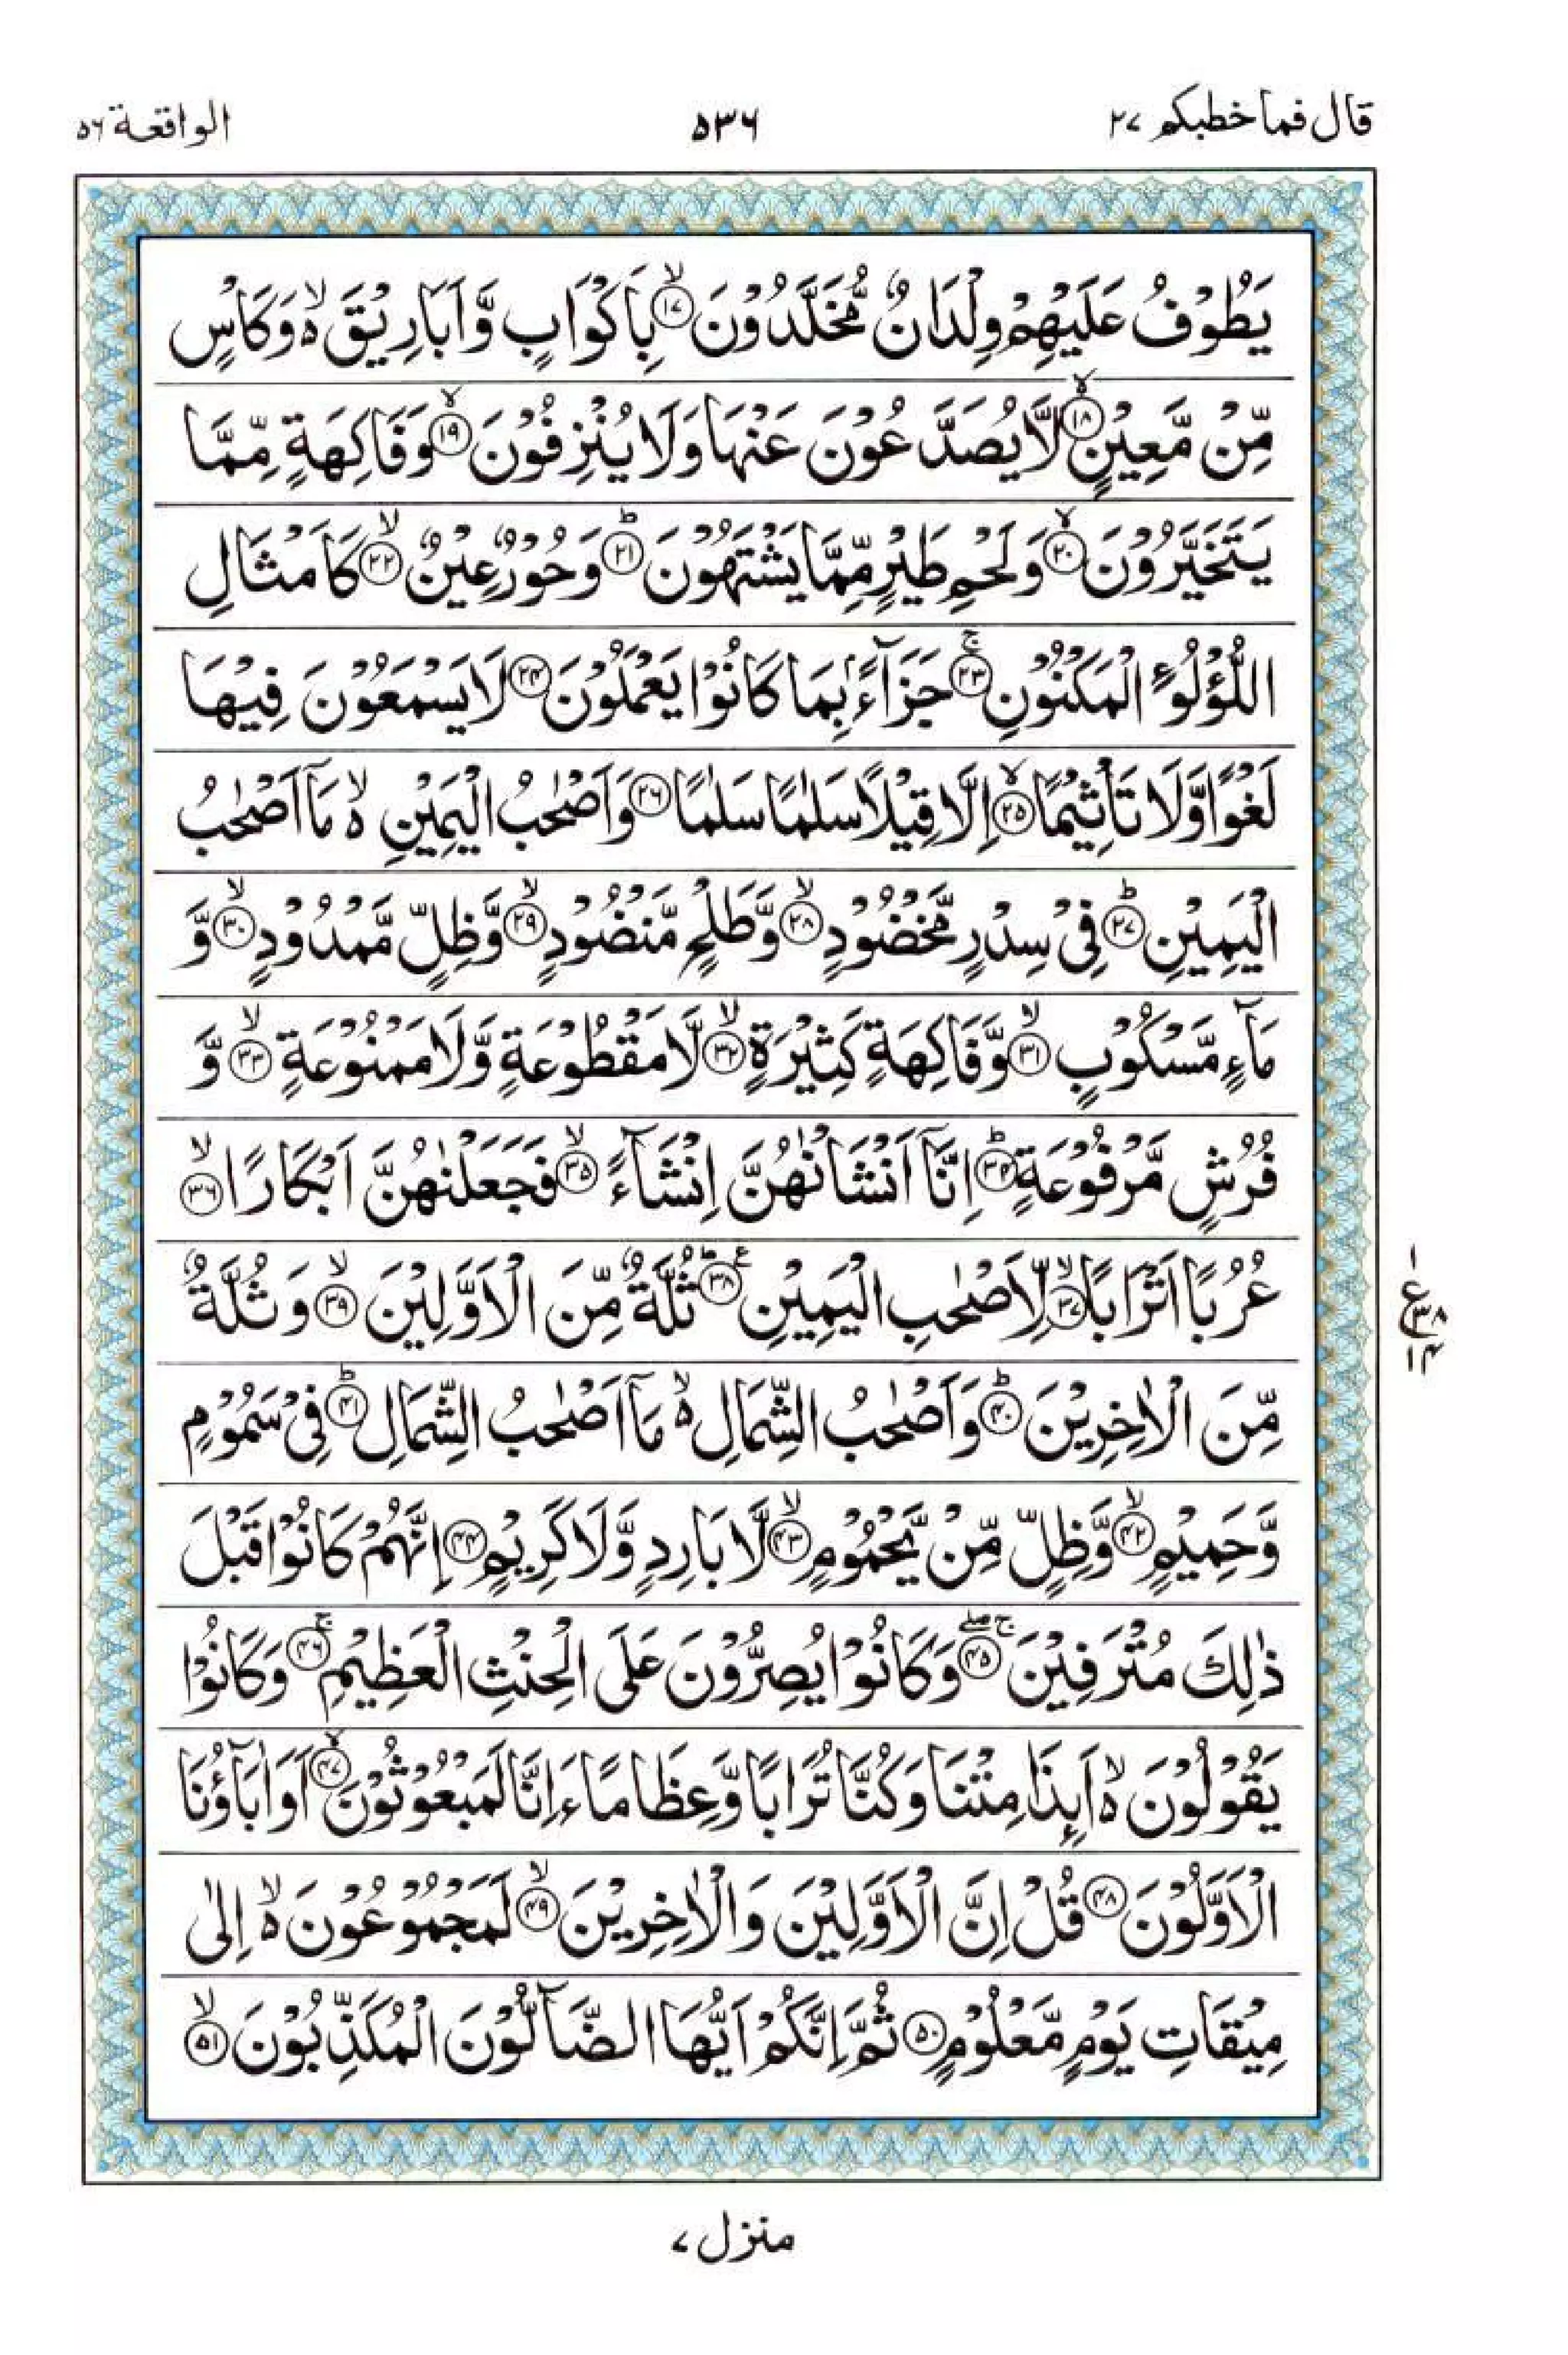 قال فما خطبكم ٢٧
٥٣٦
الواقعة ٥٦
يَطُوْفُ عَلَيْهِمْ وِلْدَانٌ مُّخَلَّدُوْنَ ۙ‏﴿۱۷﴾ بِاَكْوَابٍ وَّاَبَارِيْقَ ۙ۬ وَكَاْسٍ
مِّنْ مَّعِيْنٍ ۙ‏﴿۱۸﴾ لَّا يُصَدَّعُوْنَ عَنْهَا وَلَا يُنْزِفُوْنَ ۙ‏﴿۱۹﴾ وَفَاكِهَةٍ مِّمَّا
يَتَخَيَّرُوْنَ ۙ‏﴿۲۰﴾ وَلَحْمِ طَيْرٍ مِّمَّا يَشْتَهُوْنَ ؕ‏﴿۲۱﴾ وَحُوْرٌ عِيْنٌ ۙ‏﴿۲۲﴾ كَاَمْثَالِ
اللُّؤْلُوٴِ الْمَكْنُوْنِ ۚ‏﴿۲۳﴾ جَزَآءًۢ بِمَا كَانُوْا يَعْمَلُوْنَ ﴿۲۴﴾ لَا يَسْمَعُوْنَ فِيْهَا
لَغْوًا وَّلَا تَاْثِيْمًا ۙ‏﴿۲۵﴾ اِلَّا قِيْلًا سَلٰمًا سَلٰمًا ﴿۲۶﴾ وَاَصْحٰبُ الْيَمِيْنِ ۙ۬ مَاۤ اَصْحٰبُ
الْيَمِيْنِ ؕ‏﴿۲۷﴾ فِىْ سِدْرٍ مَّخْضُوْدٍ ۙ‏﴿۲۸﴾ وَّطَلْحٍ مَّنْضُوْدٍ ۙ‏﴿۲۹﴾ وَّظِلٍّ مَّمْدُوْدٍ ۙ‏﴿۳۰﴾ وَّ
مَآءٍ مَّسْكُوْبٍ ۙ‏﴿۳۱﴾ وَّفَاكِهَةٍ كَثِيْرَةٍ ۙ‏﴿۳۲﴾ لَّا مَقْطُوْعَةٍ وَّلَا مَمْنُوْعَةٍ ۙ‏﴿۳۳﴾ وَّ
فُرُشٍ مَّرْفُوْعَةٍ ؕ‏﴿۳۴﴾ اِنَّاۤ اَنْشَاْنٰهُنَّ اِنْشَآءً ۙ‏﴿۳۵﴾ فَجَعَلْنٰهُنَّ اَبْكَارًا ۙ‏﴿۳۶﴾
عُرُبًا اَتْرَابًا ۙ‏﴿۳۷﴾ لِّاَصْحٰبِ الْيَمِيْنِ ؕ‏﴿۳۸﴾ ثُلَّةٌ مِّنَ الْاَوَّلِيْنَ ۙ‏﴿۳۹﴾ وَثُلَّةٌ
مِّنَ الْاٰخِرِيْنَ ؕ‏﴿۴۰﴾ وَاَصْحٰبُ الشِّمَالِ ۙ۬ مَاۤ اَصْحٰبُ الشِّمَالِ ؕ‏﴿۴۱﴾ فِىْ سَمُوْمٍ
وَّحَمِيْمٍ ۙ‏﴿۴۲﴾ وَّظِلٍّ مِّنْ يَّحْمُوْمٍ ۙ‏﴿۴۳﴾ لَّا بَارِدٍ وَّلَا كَرِيْمٍ ﴿۴۴﴾ اِنَّهُمْ كَانُوْا قَبْلَ
ذٰلِكَ مُتْرَفِيْنَ ۚۖ‏﴿۴۵﴾ وَكَانُوْا يُصِرُّوْنَ عَلَى الْحِنْثِ الْعَظِيْمِ ۚ‏﴿۴۶﴾ وَكَانُوْا
يَقُوْلُوْنَ ۙ۬ اَىِٕذَا مِتْنَا وَكُنَّا تُرَابًا وَّعِظَامًا ءَاِنَّا لَمَبْعُوْثُوْنَ ۙ‏﴿۴۷﴾ اَوَاٰبَآؤُنَا
الْاَوَّلُوْنَ ﴿۴۸﴾ قُلْ اِنَّ الْاَوَّلِيْنَ وَالْاٰخِرِيْنَ ۙ‏﴿۴۹﴾ لَمَجْمُوْعُوْنَ ۙ۬ اِلٰى
مِيْقَاتِ يَوْمٍ مَّعْلُوْمٍ ﴿۵۰﴾ ثُمَّ اِنَّكُمْ اَيُّهَا الضَّآلُّوْنَ الْمُكَذِّبُوْنَ ۙ‏﴿۵۱﴾
١
ع ٣٨
١٤
منزل ٧